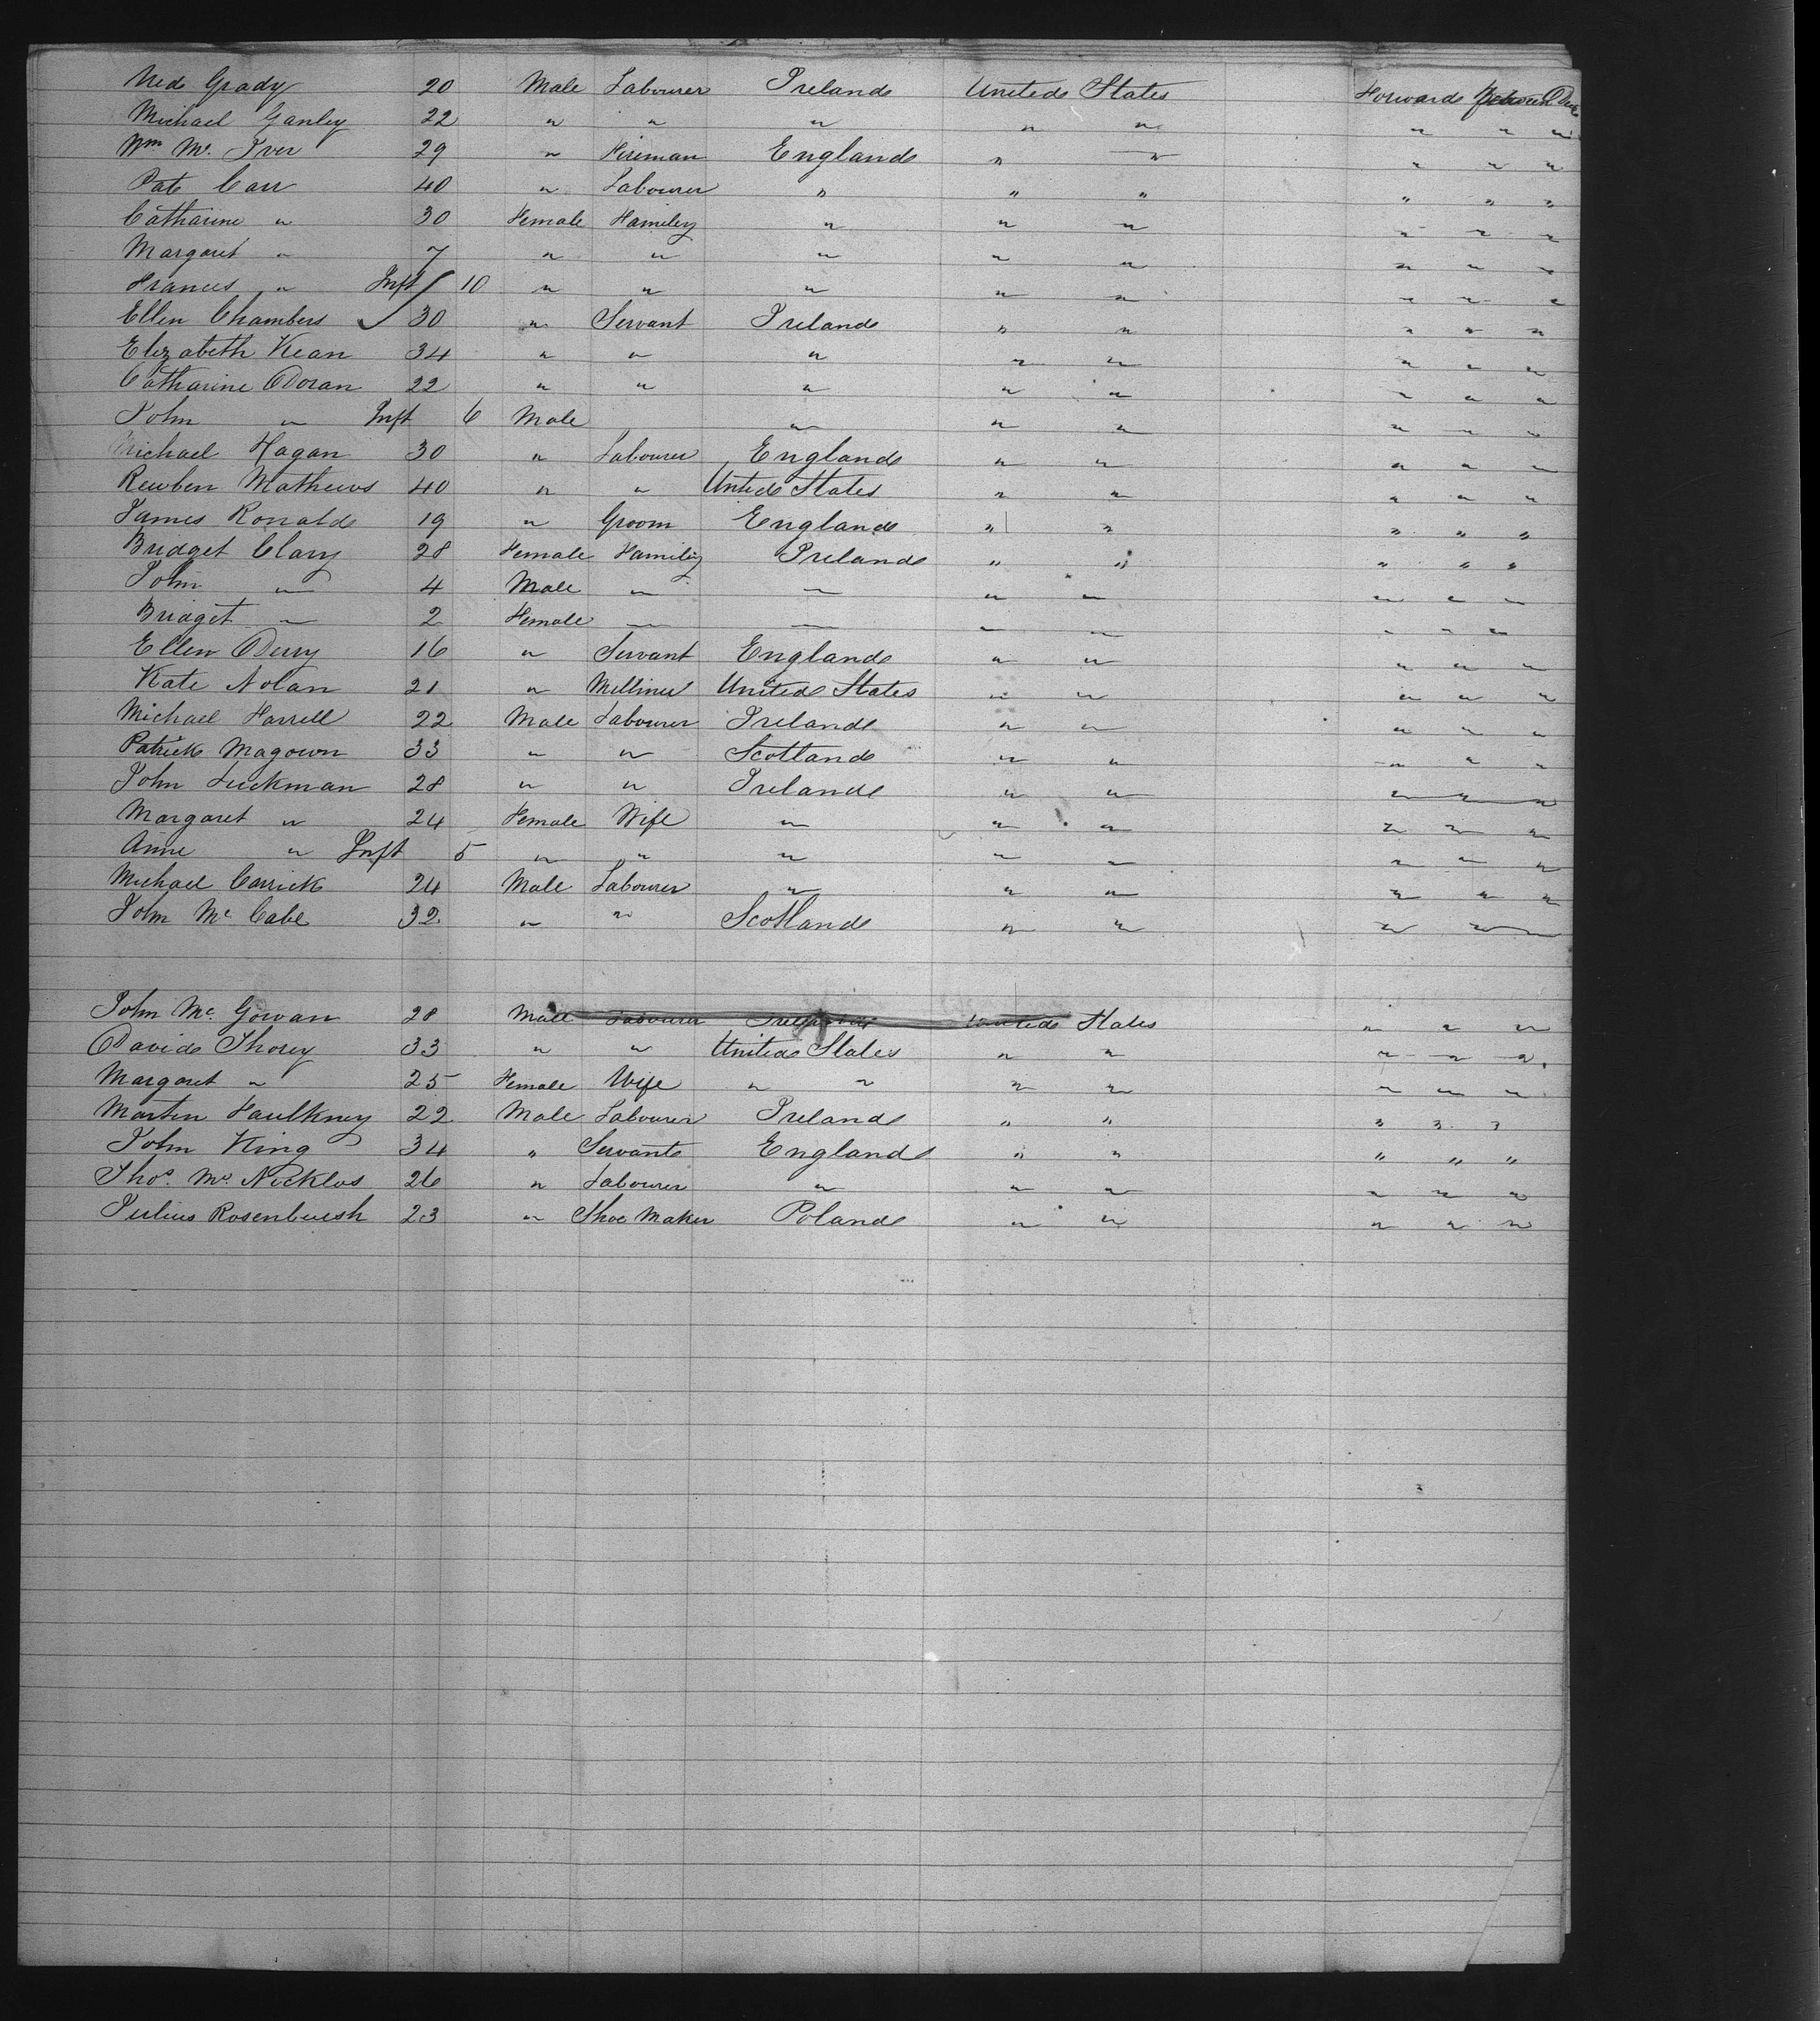 Ned Grady 20 Male Labourer Ireland United States Forward Between Deck
Michael Ganley 22 " " " " " " " "
Wm Mc Iver 29 " Fireman England " " " " "
Pat Carr 40 " Labourer " " " " " "
Catharine " 30 Female Family " " " " " "
Margaret " 7 " " " " " " " "
Frances " Inft 10 " " " " " " " "
Ellen Chambers 30 " Servant Ireland " " " " "
Elizabeth Kean 34 " " " " " " " "
Catharine Doran 22 " " " " " " " "
John " Inft 6 Male " " " " " "
Michael Hagan 30 " Labourer England " " " " "
Reuben Mathews 40 " " United States " " " " "
James Ronald 19 " Groom England " " " " "
Bridget Clary 28 Female Family Ireland " " " " "
John " 4 Male " " " " " " "
Bridget " 2 Female " " " " " " "
Ellen Derry 16 " Servant England " " " " "
Kate Nolan 21 " Milliner United States " " " " "
Michael Farrell 22 Male Labourer Ireland " " " " "
Patrick Magown 33 " " Scotland " " " " "
John Luckman 28 " " Ireland " " " " "
Margaret " 24 Female Wife " " " " " "
Anne " Inft 5 " " " " " " " "
Michael Carrick 24 Male Labourer " " " " " "
John Mc Cabe 32 " " Scotland " " " " "
John Mc Gowan 28 Male Labourer Ireland United States " " "
David Thorey 33 " " United States " " " " "
Margaret " 25 Female Wife " " " " " " "
Martin Faulkney 22 Male Labourer Ireland " " " " "
John King 34 " Servant England " " " " "
Thos. Mc Nicklus 26 " Labourer " " " " " "
Julius Rosenbush 23 " Shoe Maker Poland " " " " "